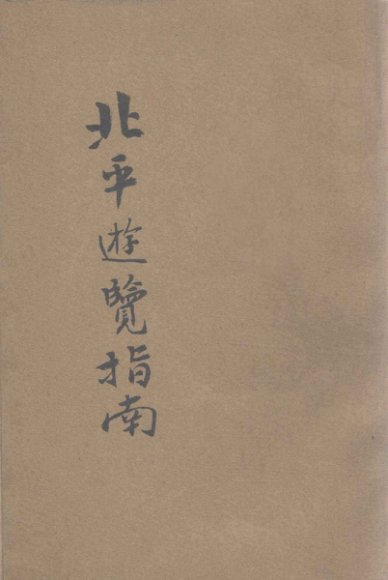 北平遊覽指南